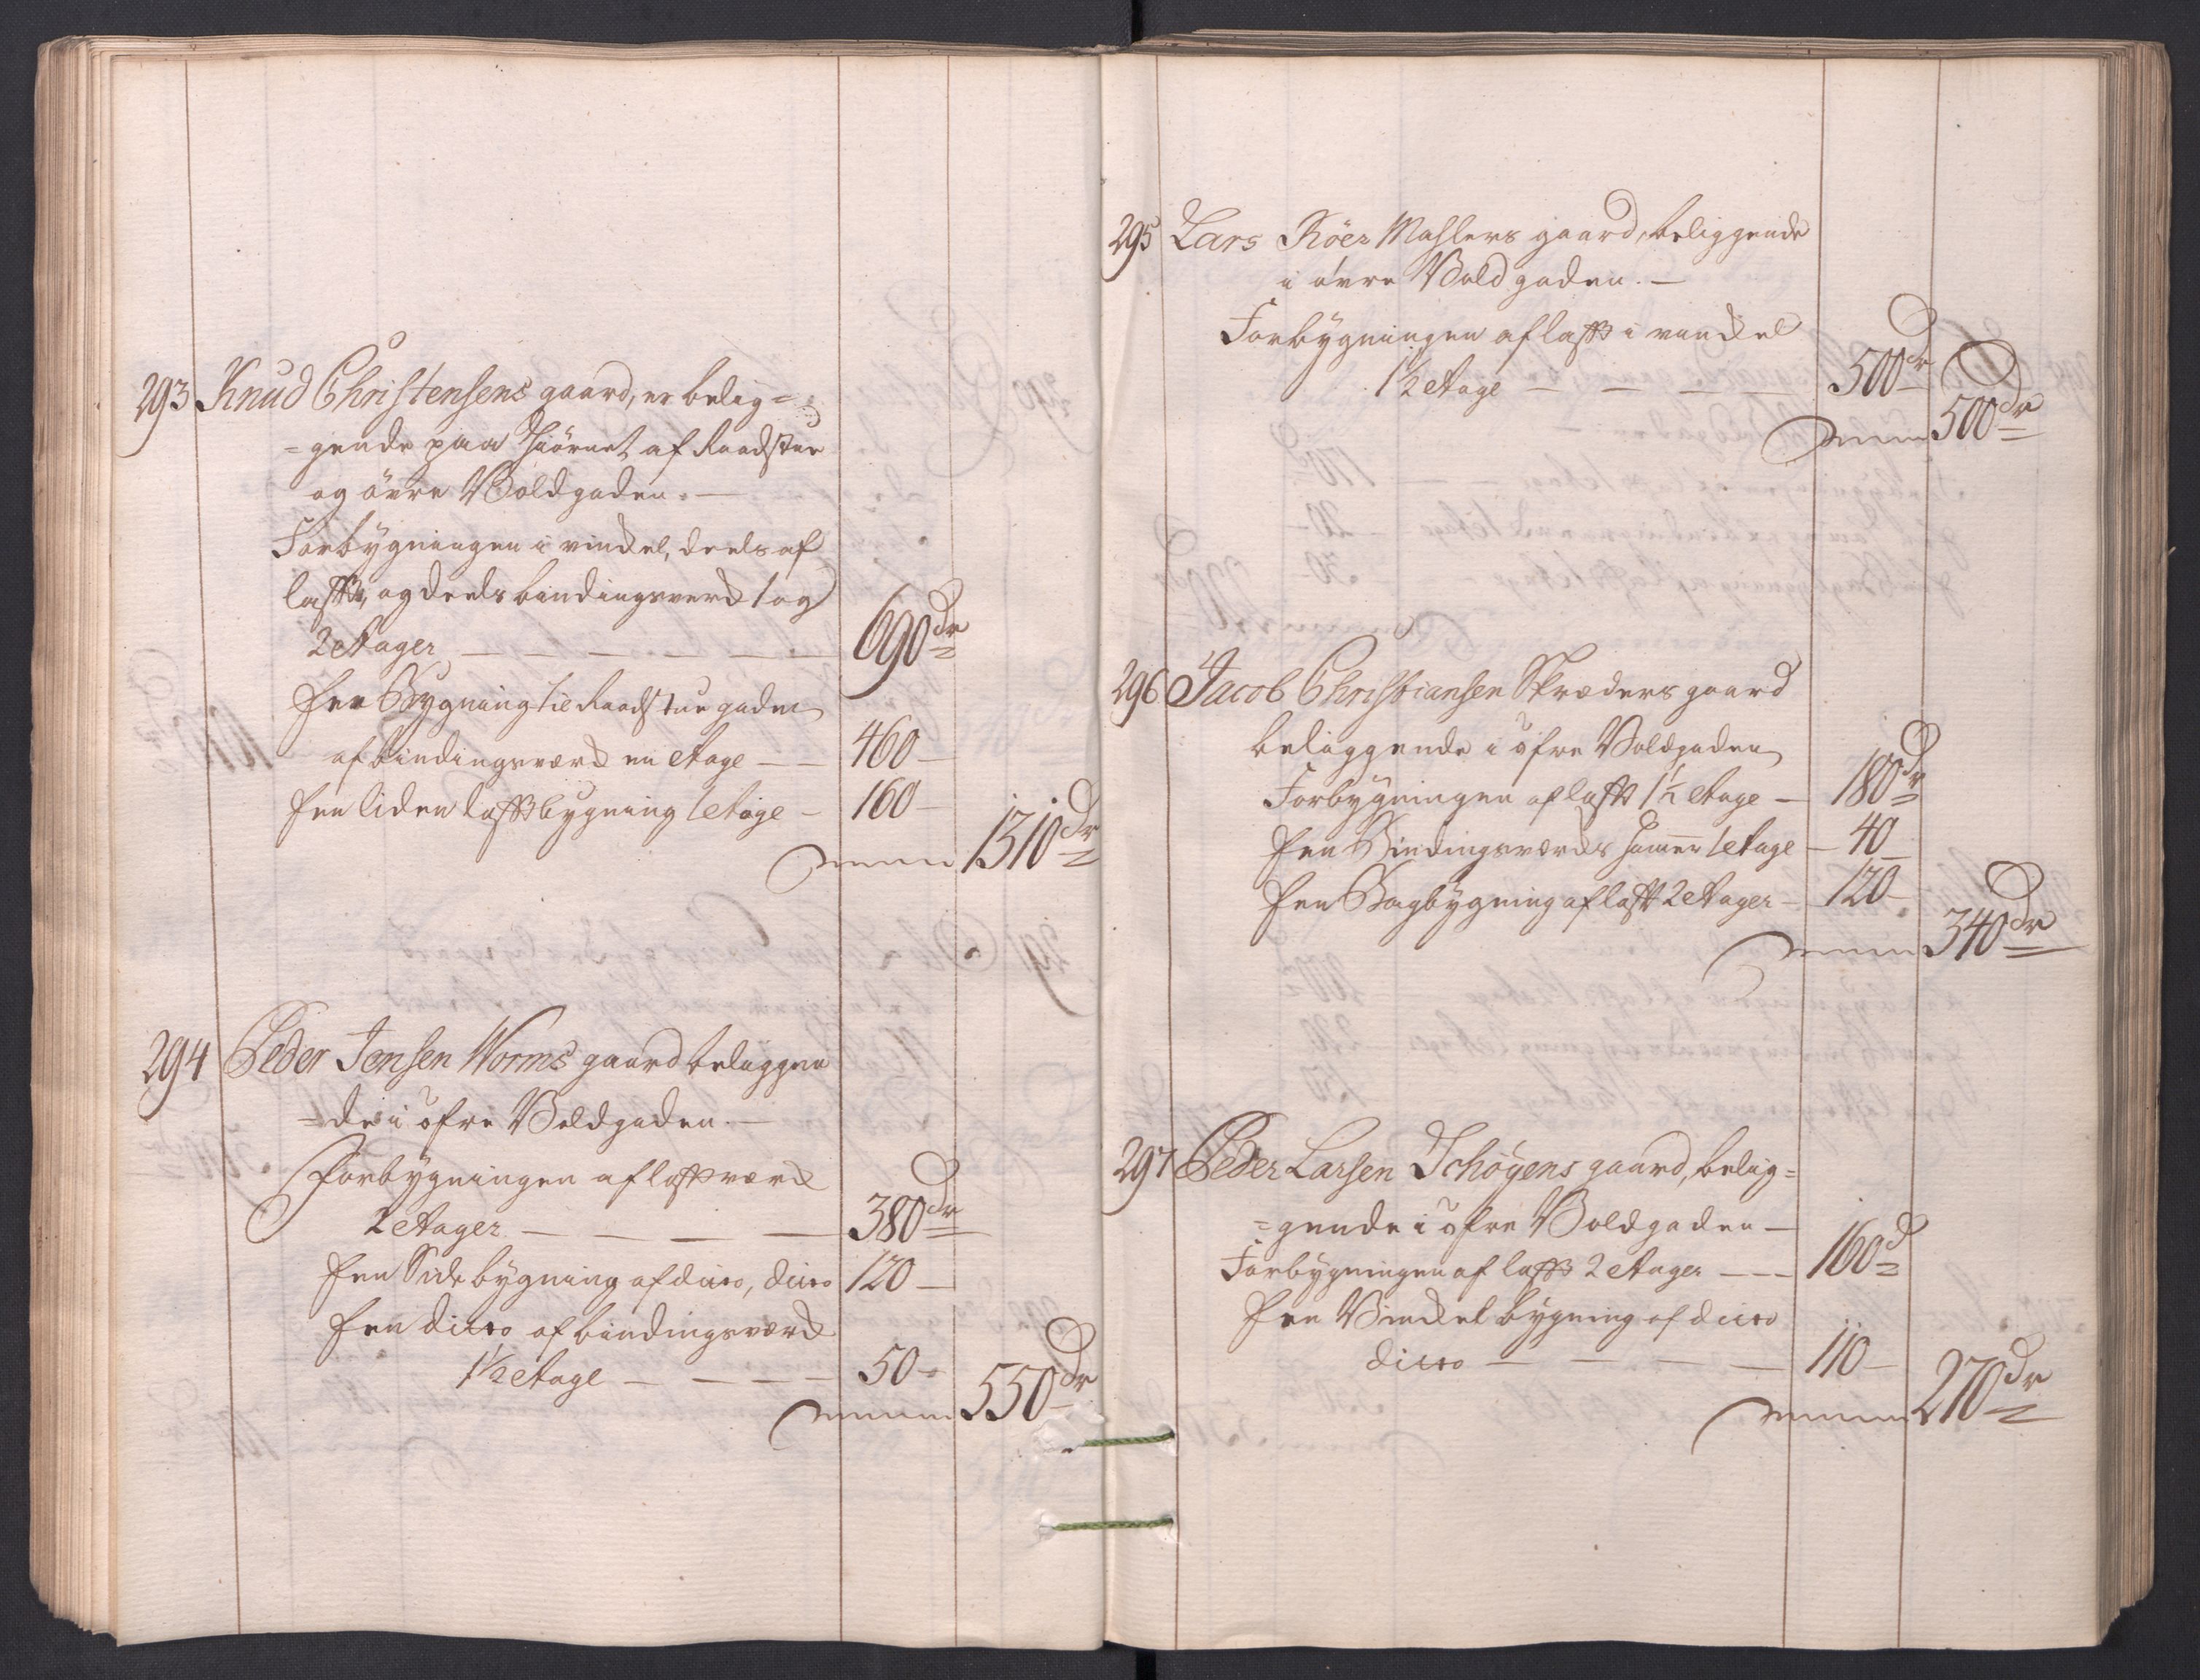 293 Knud Christensens gaard, er belig=
=gende paa Hiørnet af Raadstue
og övre Voldgaden. —
Forbygningen i vinckel, deels af
lafft, og deels bindingsverck 1 og
2 etager — — — — — 690 dr
Een Bygning til Raadstue gaden
af bindingsværck en etage — — 460 —
Een liden lafftbygning 1 etage — 160 —
Summa 1310 dr
294 Peder Jensen Worms gaard beliggen
=de i öfre Voldgaden. —
Forbygningen af lafftværck
2 etager — — — — 380 dr
Een Side bygning af ditto, ditto 120 —
Een ditto af bindingsværck
1½ etage — — — — 50 —
Summa 550 dr
295 Lars Röer Mahlers gaard, beliggende
i övre Voldgaden. —
Forbygningen af lafft i vinckel
1½ etage — — — — 500 dr
Summa 500 dr
296 Jacob Christiansen Skræders gaard
beliggende i öfre Voldgaden
Forbygningen af lafft 1½ etage — 180 dr
Een Bindingsværcks 1 etage — 40
Een Bagbygning af lafft 2 etager — 120 —
Summa 340 dr
297 Peder Larsen Schöyens gaard, belig=
=gende i öfre Voldgaden —
Forbygningen af lafft 2 etager — — — 160 d
Een Vinckel bygning af ditto
ditto — — — — 110 —
Summa 270 dr